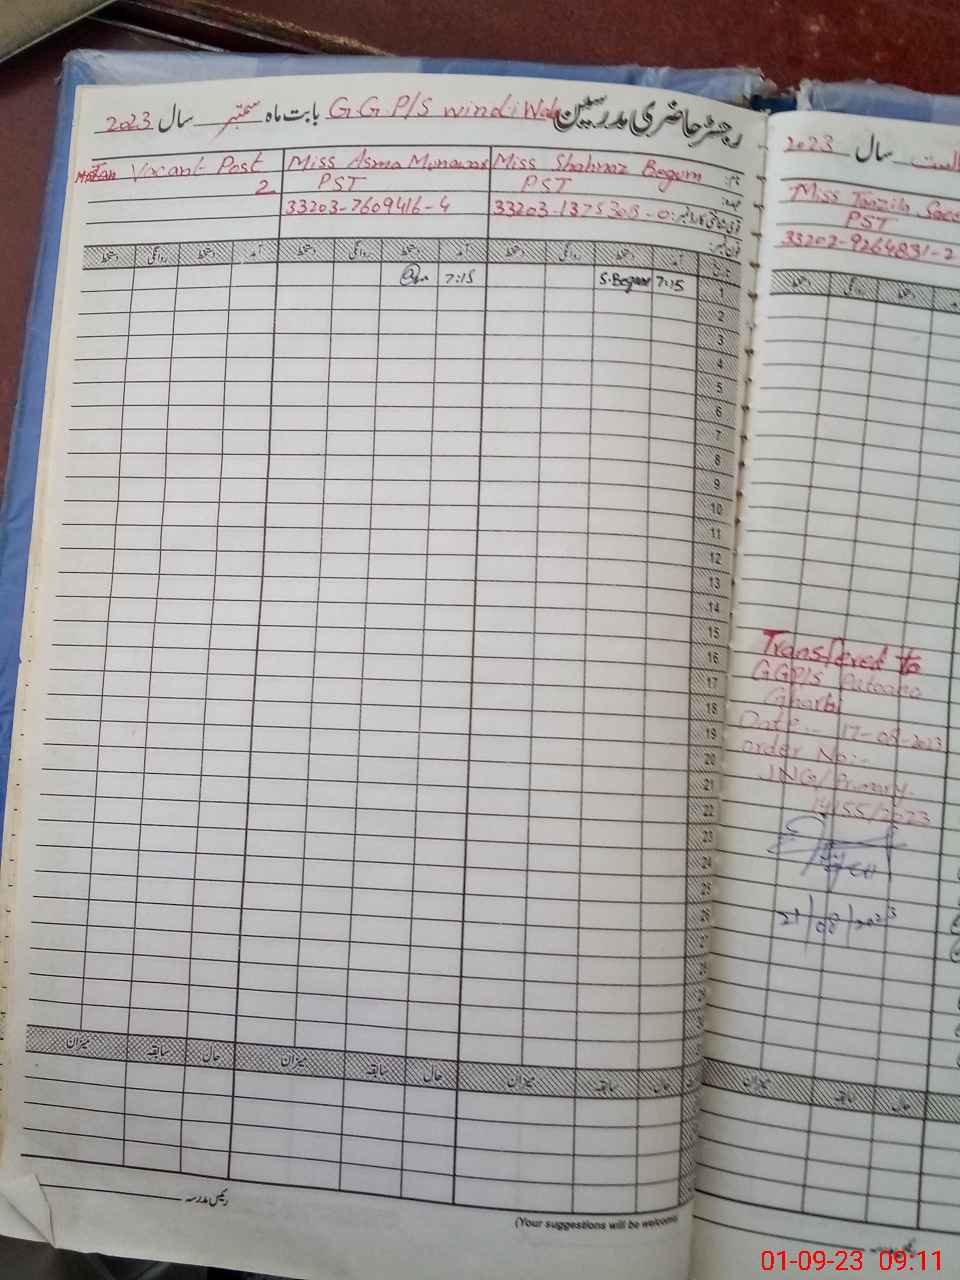 رجسٹر حاضری مدرسین G.G.P/S windi Wala بابت ماہ ستمبر سال 2023
Miss Shahnaz Begum
Miss Asma Munawar
Vacant Post
نام:
PST
PST
2
عہدہ:
33203-1375308-0
33203-7609416-4
فون نمبر:
تاریخ آمد دستخط روانگی دستخط آمد دستخط روانگی دستخط آمد دستخط روانگی دستخط
1 7:15 S.Begum 7:15
2
3
4
5
6
7
8
9
10
11
12
13
14
15
16
17
18
19
20
21
22
23
24
25
26
27
28
29
حال سابقہ میزان حال سابقہ میزان حال سابقہ میزان
رئیس مدرسہ
(Your suggestions will be welcom
سال 2023
Miss Tanzila
PST
33202-9264831-2
دستخط روانگی دستخط
Transfered to
GGP/S
Gharbi
Date:- 17-08-2023
order No:-
JNG/Primary.
14155/2023
21/08/2023
حال سابقہ میزان
01-09-23 09:11